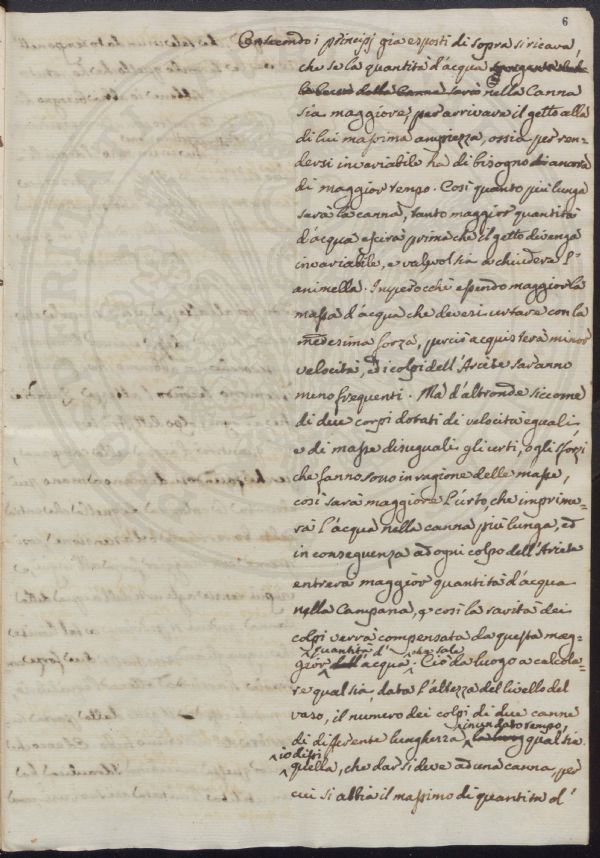 6
Conoscendo i principj già esposti di sopra si ricava,
che se la quantità d'acqua
della Canna sarà nella Canna
sia maggiore, per arrivare il getto alla
di lui massima ampiezza, ossia per ren=
dersi invariabile ha di bisogno di ancora
di maggior tempo. Così quanto più lunga
sarà la canna, tanto maggior quantità
d'acqua escirà prima che il getto divenga
invariabile, e valevol sia a chiudere l'
animella. Imperocchè essendo maggior la
massa d'acqua che devesi urtare con la
medesima forza, perciò acquisterà minor
velocità, ed i colpi dell'Ariete saranno
meno frequenti. Ma d'altronde siccome
di due corpi dotati di velocità eguali
e di masse disuguali gli urti, o gli sforzi
che fanno sono in ragione delle masse,
così sarà maggiore l'urto, che imprime=
rà l'acqua nella canna più lunga, ed
in conseguenza ad ogni colpo dell'Ariete
entrerà maggior quantità d'acqua
nella Campana, e così la rarità dei
colpi verrà compensata da questa mag=
quantità d' che sale
gior dell'acqua. Ciò dà luogo a calcola=
re qual sia, data l'altezza del livello del
vaso, il numero dei colpi di due canne
in un dato tempo,
di differente lunghezza, qual sia
io dissi
quella, che dar si deve ad una canna, per
cui si abbia il massimo di quantità d'